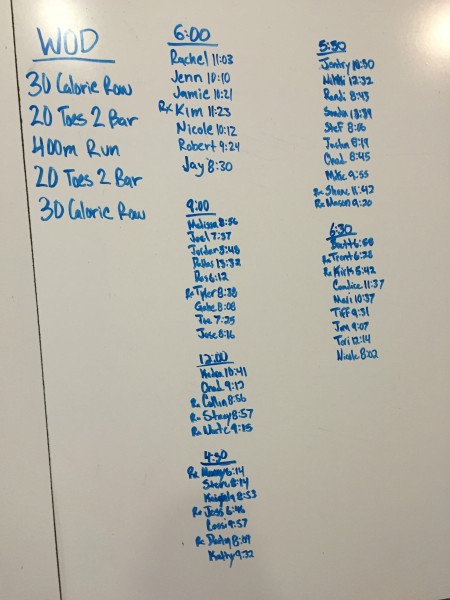 WOD
30 Calorie Row
20 Toes 2 Bar
400m Run
20 Toes 2 Bar
30 Calorie Row
6:00
Rachel 11:03
Jenn 10:10
Jamie 10:21
Rx Kim 11:23
Nicole 10:12
Robert 9:24
Jay 8:30
9:00
Madison 8:56
Joel 7:37
Jordan 5:48
Dallas 13:32
Ros 6:12
Rx Tyler 8:38
Gabe 8:08
Joe 7:25
Jose 8:16
12:00
10:41
Chad 9:17
Rx Collin 8:56
Rx Stacy 8:57
Rx Nate 9:15
4:30
Rx 6:14
Steve 8:14
8:53
Rx Jess 6:46
9:57
Rx 8:09
Kathy 9:32
5:30
10:50
Nikki 12:32
Randi 8:43
Stef 8:06
Justin 8:19
Chad 8:45
Mike 9:55
Rx Shane 11:42
Rx Mason 9:20
6:30
Brett 6:58
Rx Trent 6:28
Rx Kirk 5:42
Candice 11:37
Mari 10:37
Tiff 9:31
9:07
Tori 12:14
Nicole 8:02